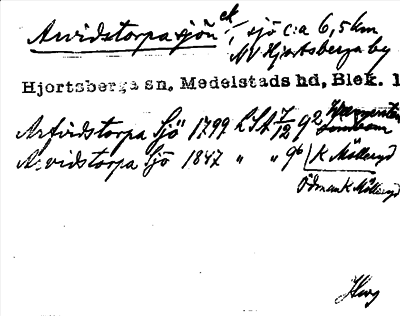 Arvidstorpasjön ek — , sjö c:a 6,5 km
NV Hjortsberga by
Hjortsberga sn, Medelstads hd, Blek. 1
Arfvidstorpa Sjö 1799 LSA 7/12 92
Arvidstorpa Sjö 1847 " " 96 K Mölleryd
Ödman K Mölleryd